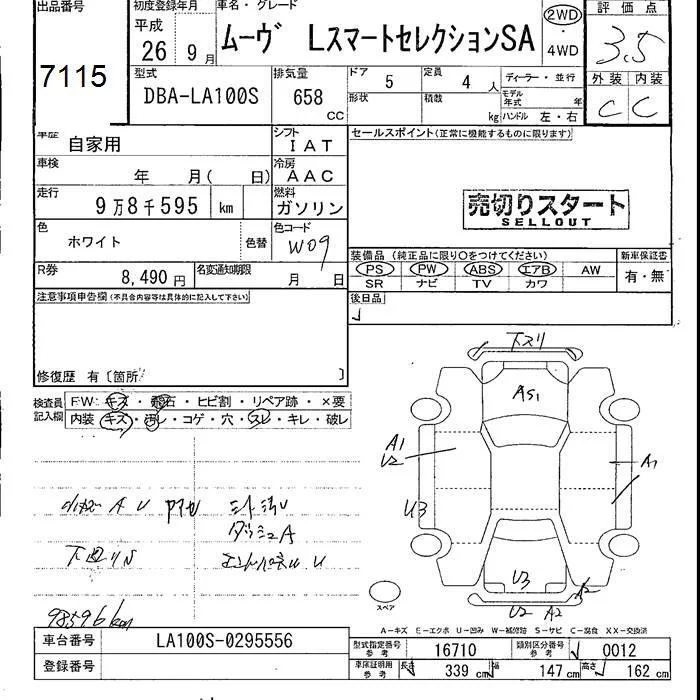 出品番号
7115
初度登録年月
平成
26 9月
車名・グレード
ムーヴ LスマートセレクションSA
2WD
・
4WD
評価点
3.5
外装 内装
C C
型式
DBA-LA100S
排気量
658
CC
ドア 5
定員 4 人
形状
積載 kg
ディーラー・並行
モデル年式 年
ハンドル 左・右
車歴 自家用
シフト IAT
車検 年 月( 日)
冷房 AAC
走行 9万8千595 km
燃料 ガソリン
色 ホワイト
色替
色コード W09
R券 8,490円
名変通知期限 月 日
セールスポイント(正常に機能するものに限ります)
売切りスタート
SELLOUT
装備品 (純正品に限り○をつけてください)
PS PW ABS エアB AW
SR ナビ TV カワ
新車保証書
有・無
後日品
注意事項申告欄(不具合内容等は具体的に記入して下さい)
修復歴 有〔箇所 〕
検査員記入欄
FW キズ・飛石・ヒビ割・リペア跡・×要
内装 キズ・汚レ・コゲ・穴・スレ・キレ・破レ
A U
ダッシュA
U
下廻りS
98596km
下スリ
AS1
A1
U2
A1
U3
U3
A2
U2 A2
スペア
A-キズ E-エクボ U-凹み W-補修跡 S-サビ C-腐食 XX-交換済
車台番号 LA100S-0295556
登録番号
型式指定番号 参考 16710
類別区分番号 参考 0012
車庫証明用 参考 長さ 339 cm 幅 147 cm 高さ 162 cm